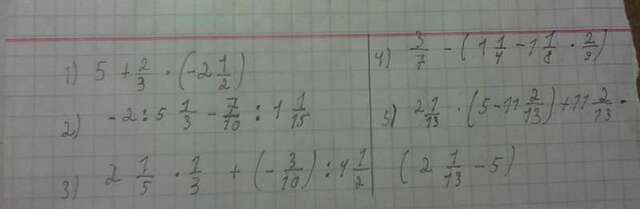 1) 5 + 2/3 · (-2 1/2)
2) -2 : 5 1/3 - 7/10 : 1 1/15
3) 2 1/5 · 1/3 + (- 3/10) : 4 1/2
4) 3/7 - (1 1/4 - 1 1/8 · 2/9)
5) 2 1/13 · (5 - 11 2/13) + 11 2/13 ·
(2 1/13 - 5)